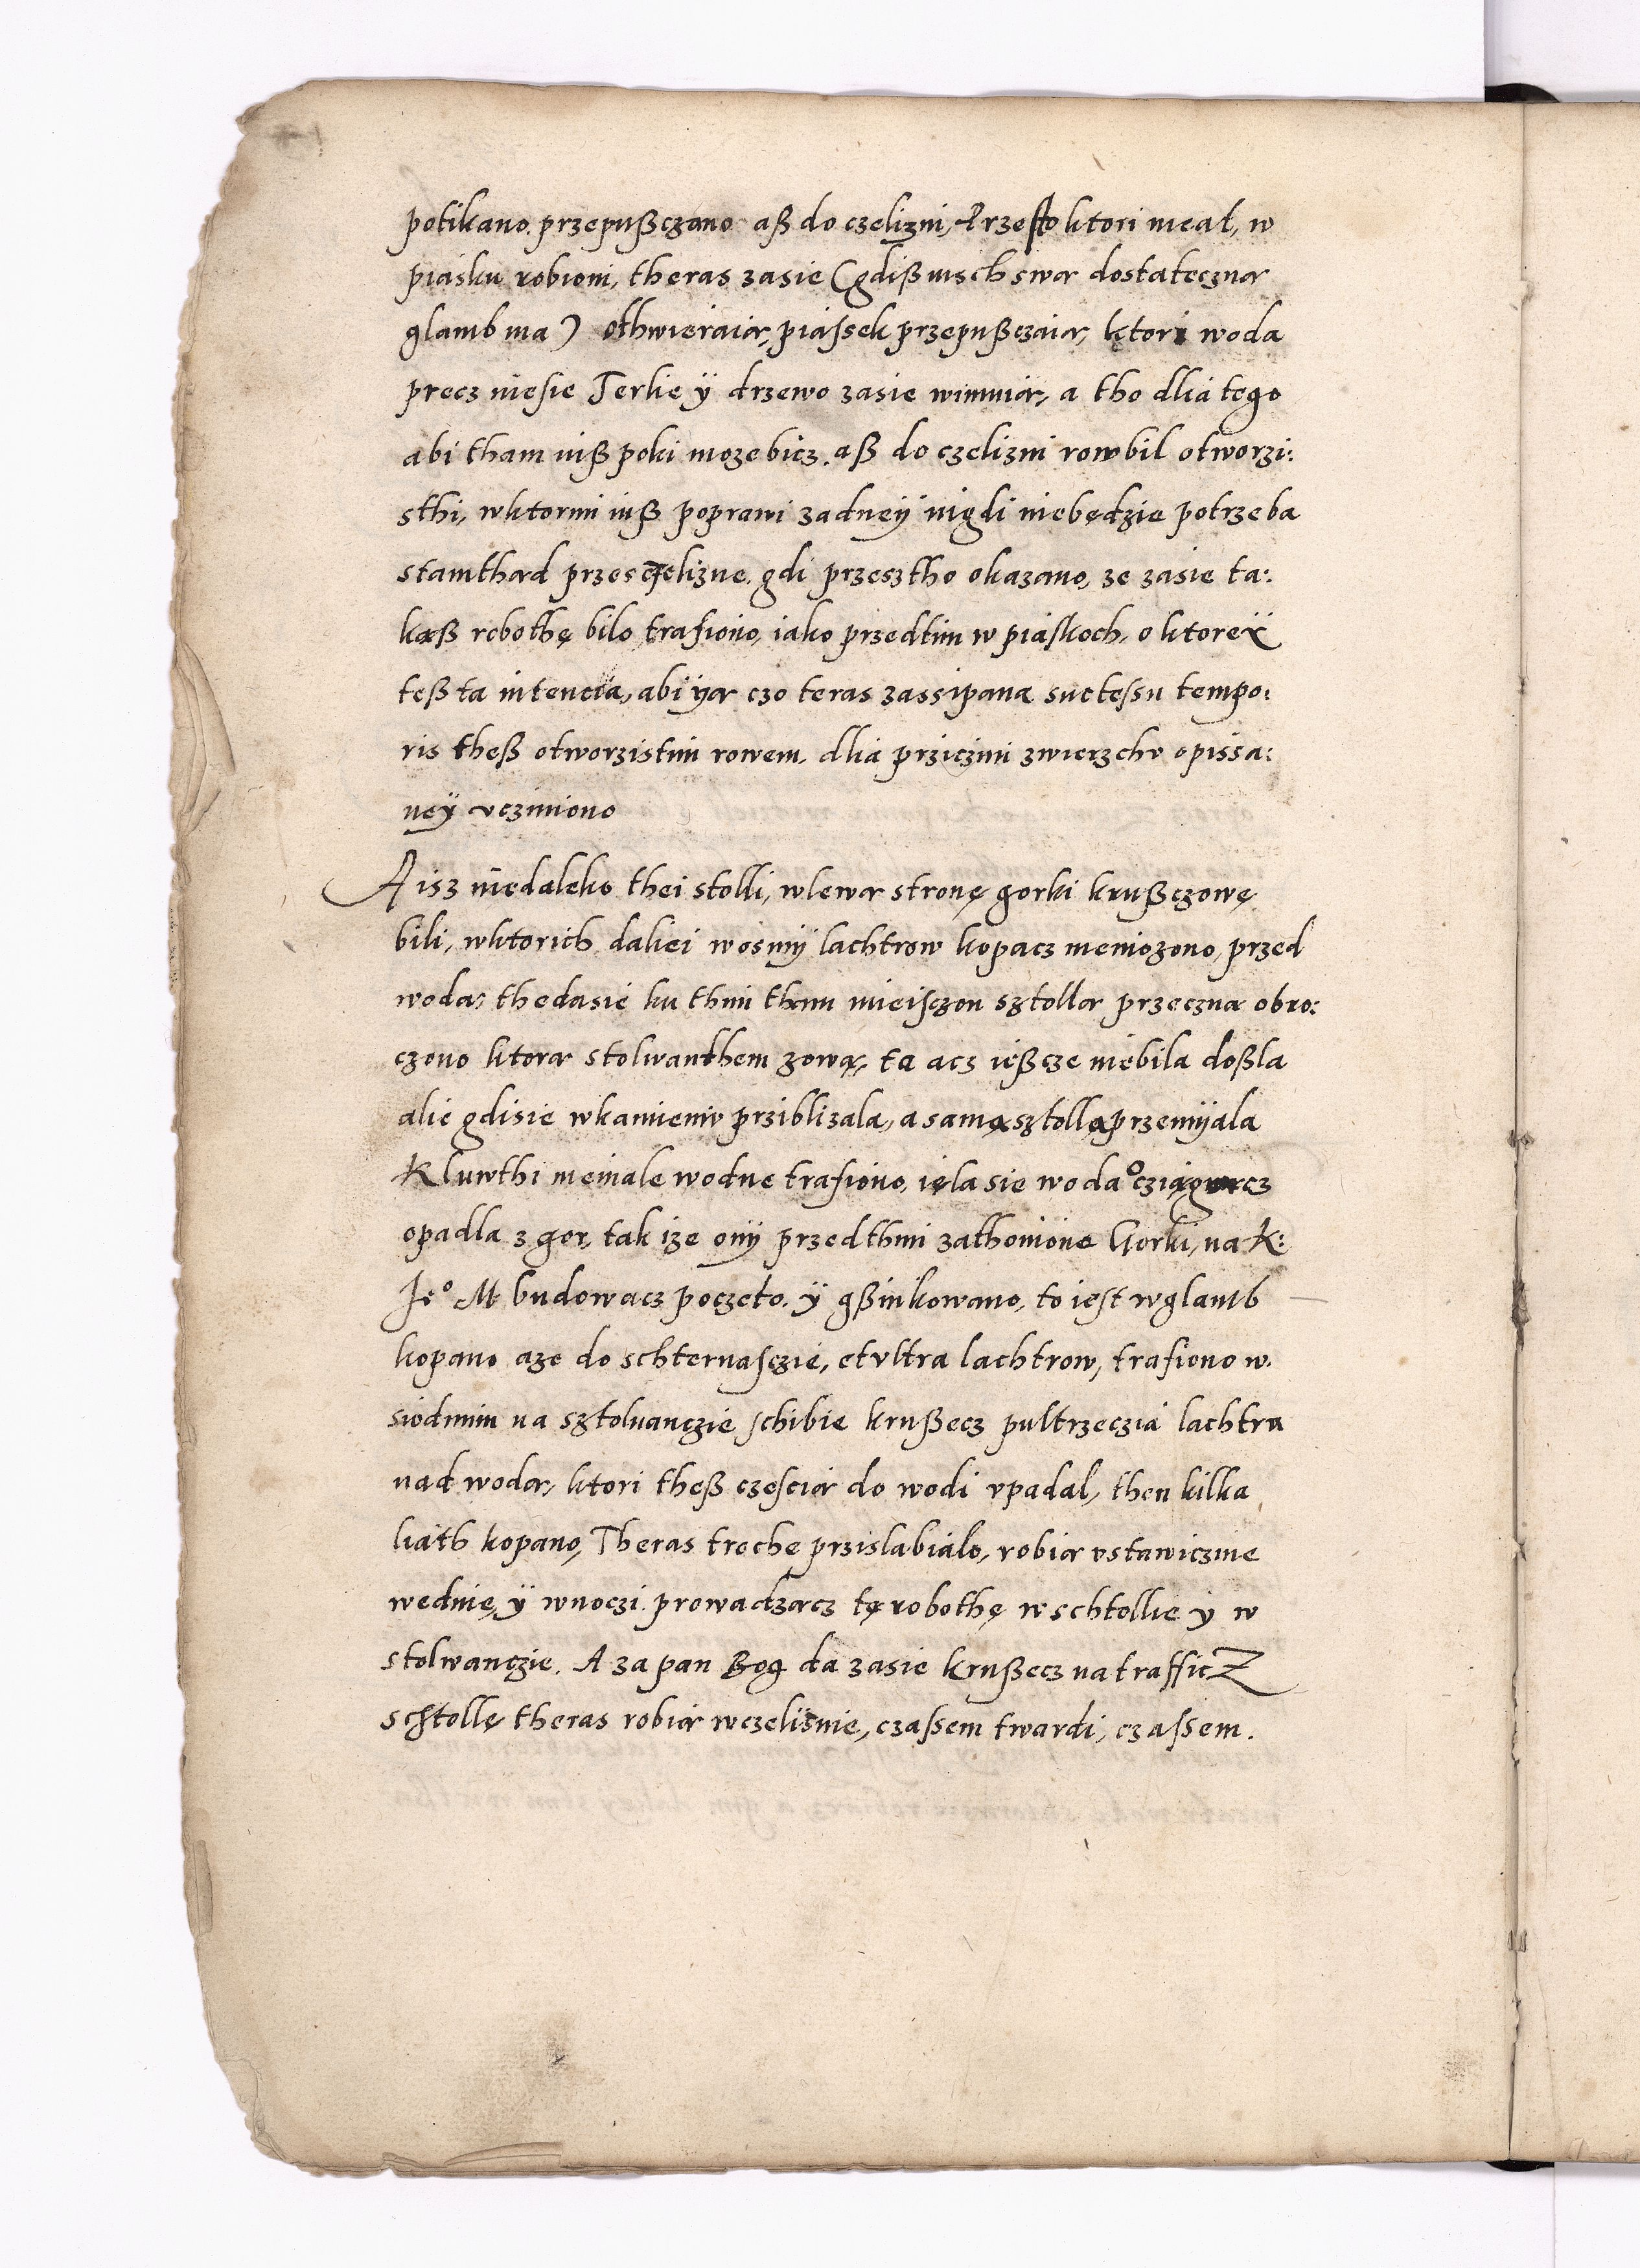 potikano przepußczano aß do czelizni, Przesto ktori meat, w
piasku robioni, theras zasie (gdiß iusch swar dostatecznar
glamb ma) othwieraiar, piassek przepußczaiar, ktori woda
precz niesie Terlie ÿ drzewo zasie wimniar, a tho dlia tego
abi tham niß poki moze bicz. aß do czelizni row bil otworzi:
sthi, w ktorim iuß poprawi zadneÿ nigdi niebędzie potrzeba
stamthard przes czelizne. gdi przesztho okazano, ze zasie ta:
kaß robothę bilo trafiono, iako przedtim w piaskoch, o ktoreÿ
teß ta intencia, abi ÿar czo teras zassipana suctessu tempo:
ris theß otworzistim rowem, dlia prziczini zwierzchv opissa:
neÿ vcziniono
A isz niedaleko thei stolli, w lewar stronę gorki krußczowę
bili, w ktorich daliei wosmÿ lachtrow kopacz niemozono, przed
wodar thedasie ku thim tham mieisczon sztollar przecznar obro:
czono ktorar stolwanthem zowar, ta acz ießcze niebila doßla
alie gdisie w kamieniv przibliżala, a samę sztollę przemÿala
Kluwthi meinale wodne trafiono, ięla sie woda cziągnącz
opadla z gor, tak ize onÿ przedthim zathonione Gorki, na K:
Ieo M budowacz poczeto. ÿ gßinkowano, to iest w glamb
kopano aze do schternasczie, et vltra lachtrow, trafiono w
siodmim na sztoluanczie schibie krußecz pultrzeczia lachtra
nad wodar, ktori theß częsciar do wodi vpadal, then kilka
liath kopano, Theras troche przislabialo, robiar vstawicznie
wednię, ÿ wnoczi prowadzarcz tę robothę w schtollie y w
stolwanczie. A za pan Bog da zasie krußecz natrafficZ
schtollę theras robiar w czelisnie, czassem twardi, czassem.